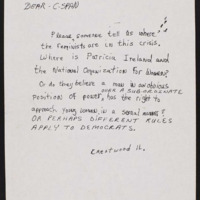 DEAR - C-SPAN
Please, someone tell us where
the feminists are in this crisis.
Where is Patricia Ireland and
the National Organization for Women?
Or do they believe a man in an obvious
position of power, over a subordinate
has the right to
approach young women, in a sexual manner?
OR PERHAPS DIFFERENT RULES
APPLY TO DEMOCRATS.
Crestwood Il.